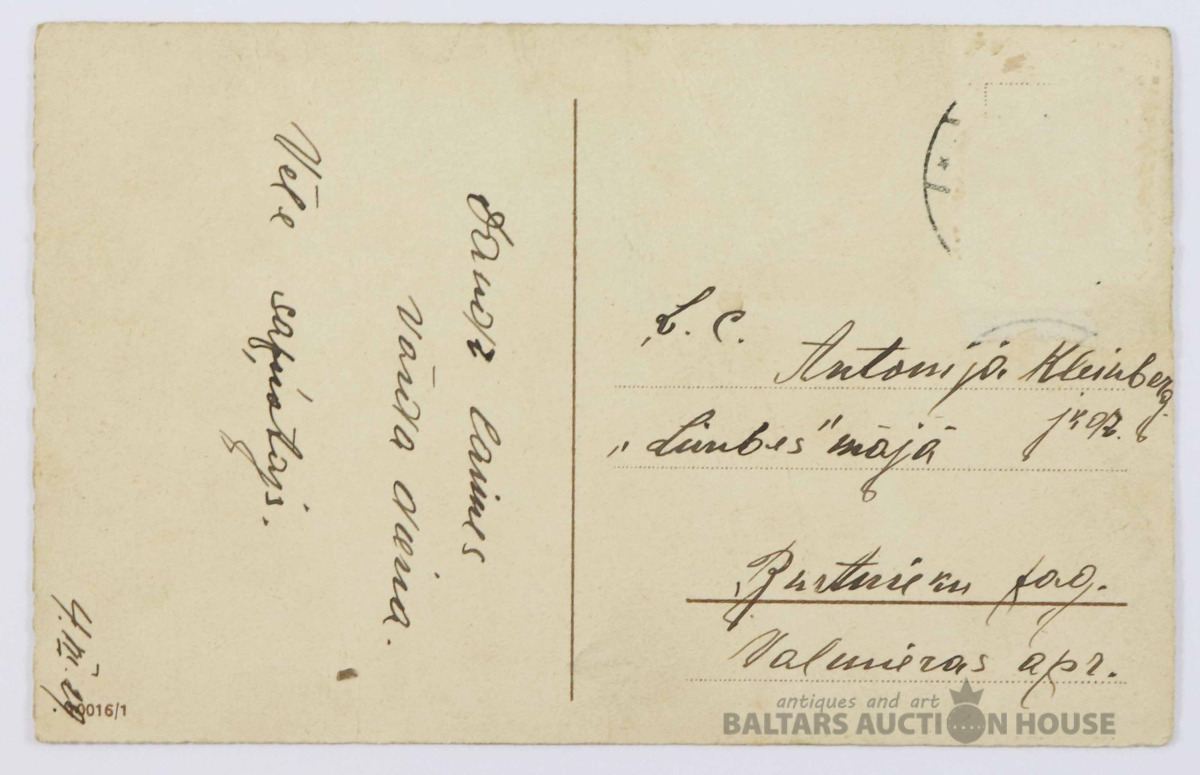 Daudz laimes
vārda dienā.
Vēle sapņotājs.
0016/1
Ļ. c.
Antonija Kleinberg
jkdz.
mājā
Burtnieku pag.
Valmieras apr.
antiques and art
BALTARS AUCTION HOUSE